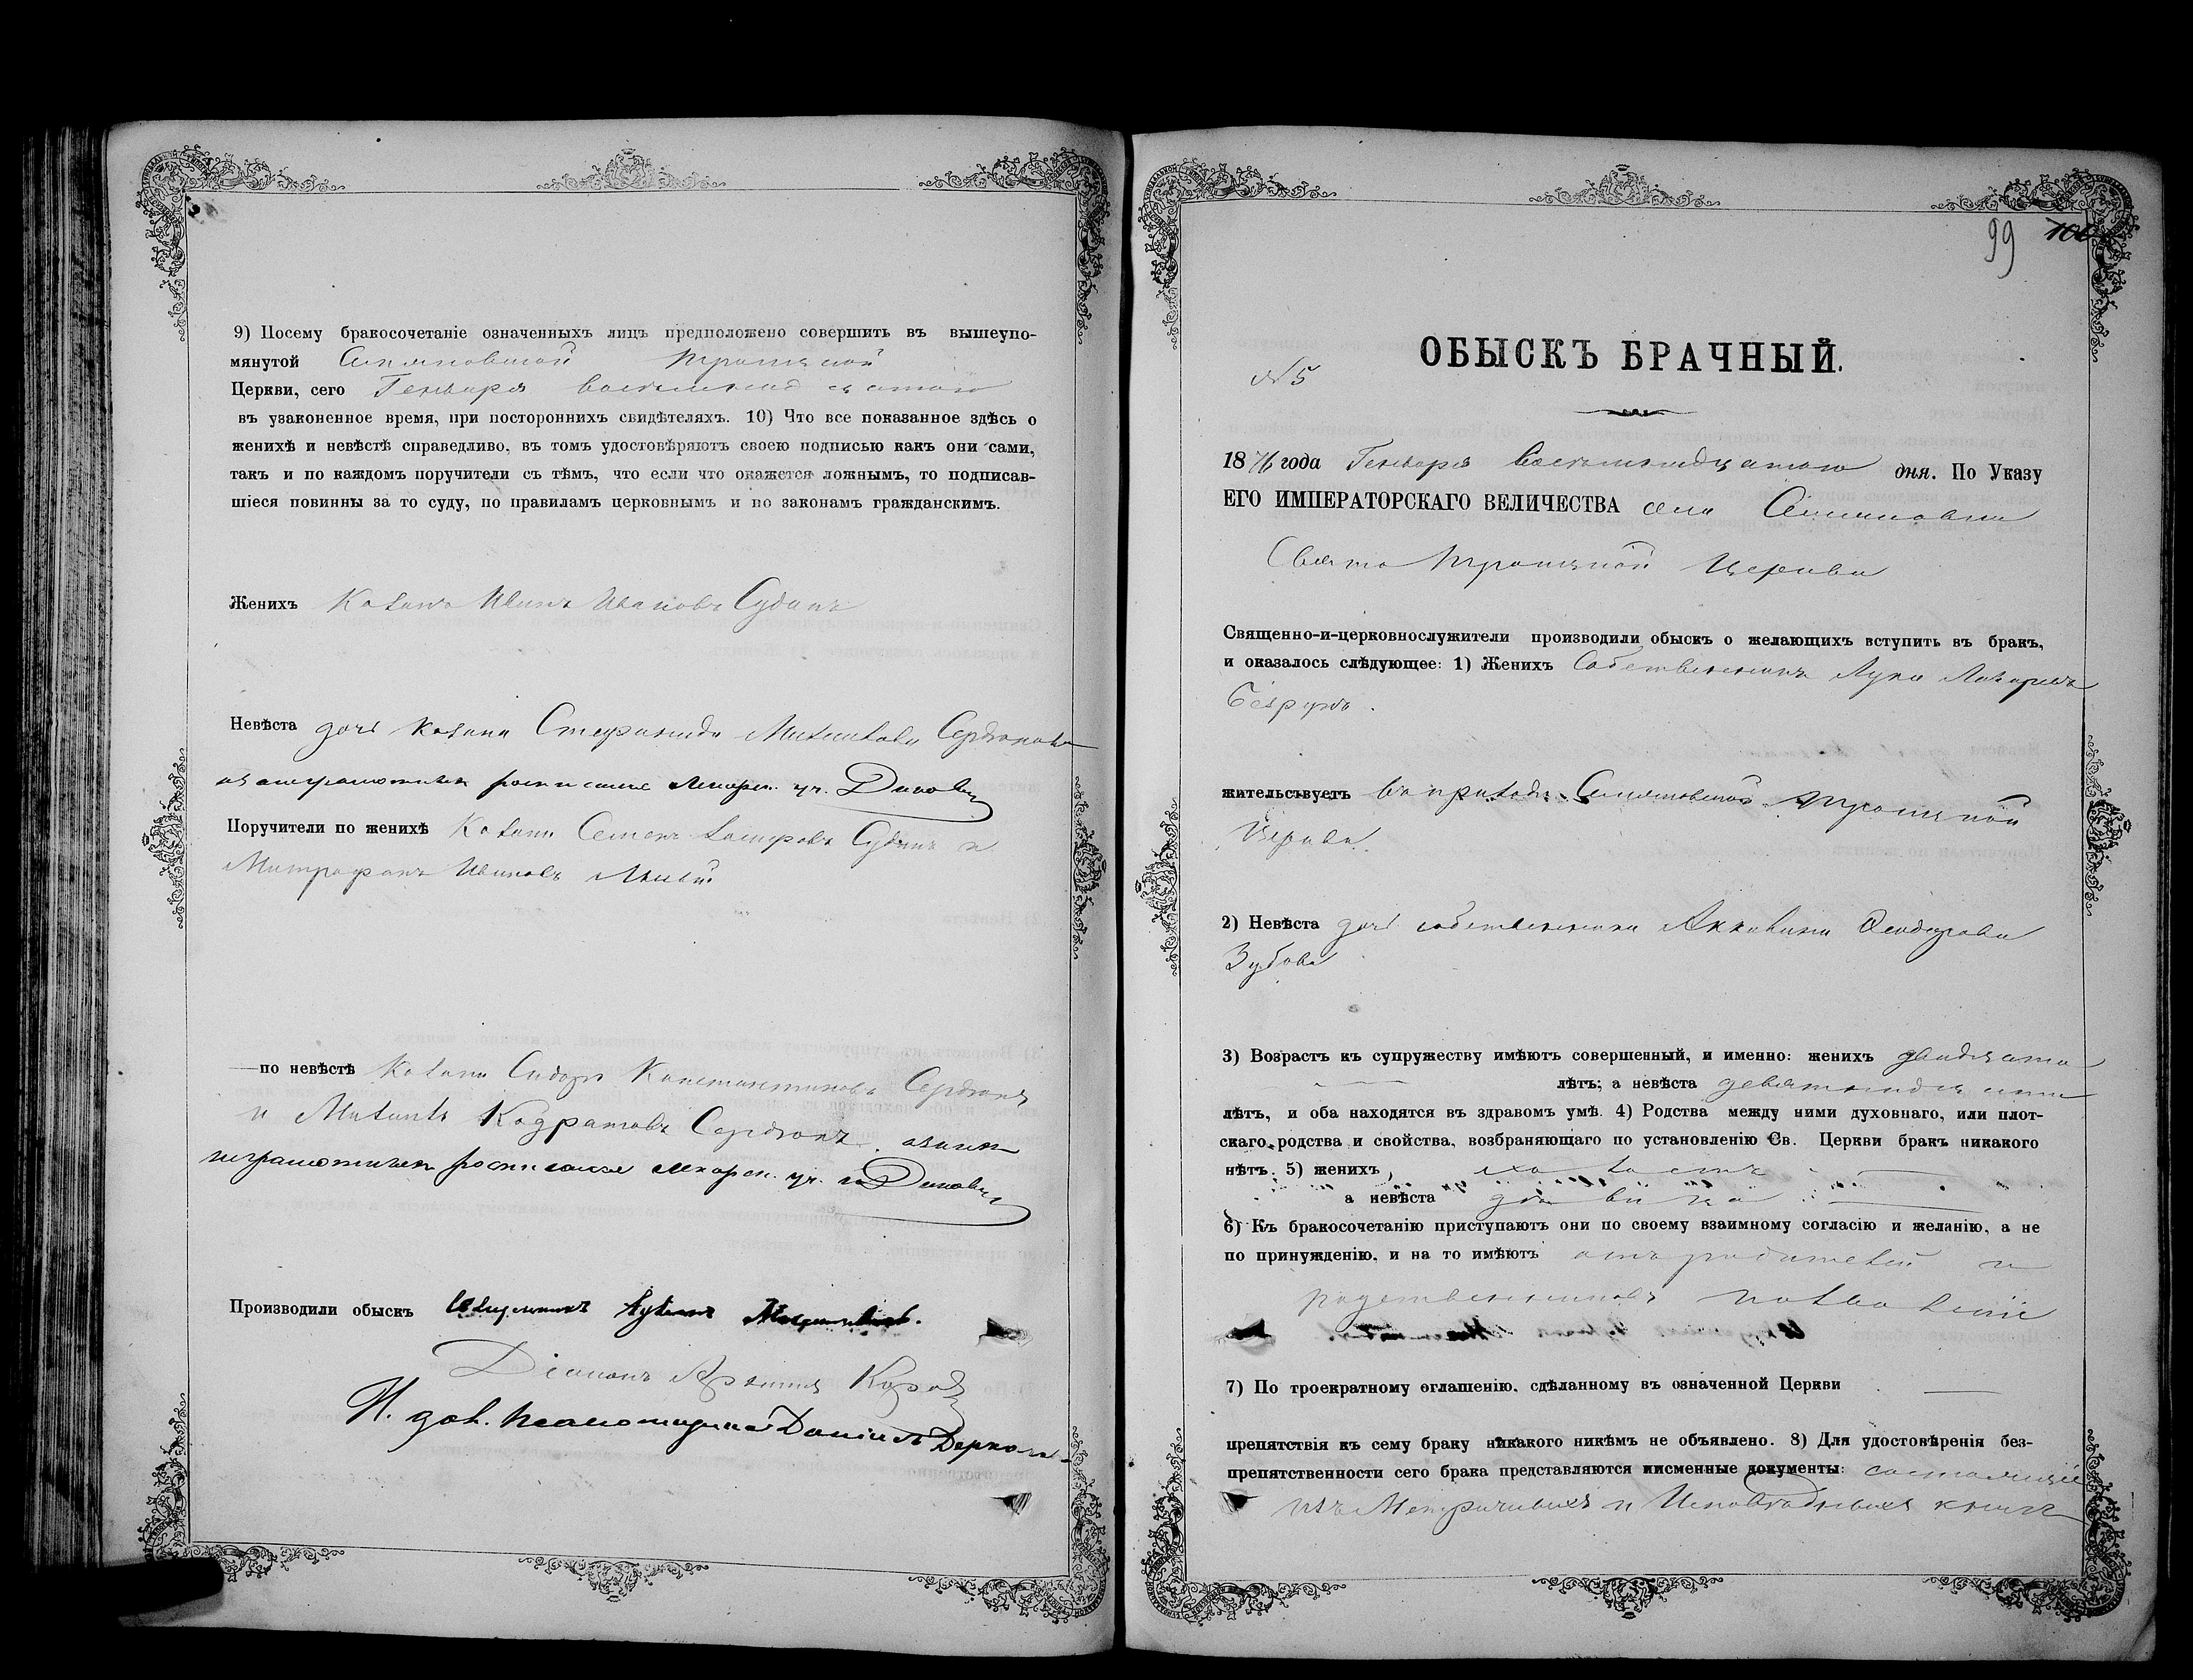 9) Посему бракосочетаніе означенныхъ лицъ предположено совершить въ вышеупо-
мянутой Троицкой
Церкви, сего Генваря восемнадцатаго
въ узаконенное время, при постороннихъ свидѣтеляхъ. 10) Что все показанное здѣсь о
женихѣ и невѣстѣ справедливо, въ томъ удостовѣряютъ своею подписью какъ они сами,
такъ и по каждомъ поручители съ тѣмъ, что если что окажется ложнымъ, то подписав-
шіеся повинны за то суду, по правиламъ церковнымъ и по законамъ гражданскимъ.
Женихъ Козакъ Иванъ Ивановъ Судакъ
Невѣста дочь козака Стефанида Михайлова Сердюкова
а за неграмотныхъ росписался
Поручители по женихѣ Козаки Семенъ Судакъ и
Митрофанъ Ивановъ
—по невѣстѣ Козаки Сидоръ Константиновъ Сердюкъ
и Михаилъ Кодратовъ Сердюкъ, а за нихъ
неграмотныхъ росписался
Производили обыскъ Священникъ
Діаконъ
И. дол. псаломщика Даніилъ
99
ОБЫСКЪ БРАЧНЫЙ.
№ 5
1876 года Генваря восемнадцатаго дня. По Указу
ЕГО ИМПЕРАТОРСКАГО ВЕЛИЧЕСТВА села
Свято Троицкой Церкви
Священно-и-церковнослужители производили обыскъ о желающихъ вступить въ бракъ,
и оказалось слѣдующее: 1) Женихъ Собственникъ Лука Лазаревъ
жительствуетъ въ приходѣ Троицкой
Церкви
2) Невѣста дочь собственника Акилина Феодорова
Зубова
3) Возрастъ къ супружеству имѣютъ совершенный, и именно: женихъ двадцати
лѣтъ; а невѣста девятнадцати
лѣтъ, и оба находятся въ здравомъ умѣ. 4) Родства между ними духовнаго, или плот-
скаго родства и свойства, возбраняющаго по установленію Св. Церкви бракъ никакого
нѣтъ. 5) женихъ, холостъ
а невѣста дѣвица
6) Къ бракосочетанію приступаютъ они по своему взаимному согласію и желанію, а не
по принужденію, и на то имѣютъ отъ родителей и
родственниковъ позволеніе
7) По троекратному оглашенію, сдѣланному въ означенной Церкви
препятствія къ сему браку никакого никѣмъ не объявлено. 8) Для удостовѣренія без-
препятственности сего брака представляются письменные документы: состоящіе
изъ Метричныхъ и Исповѣдныхъ книгъ